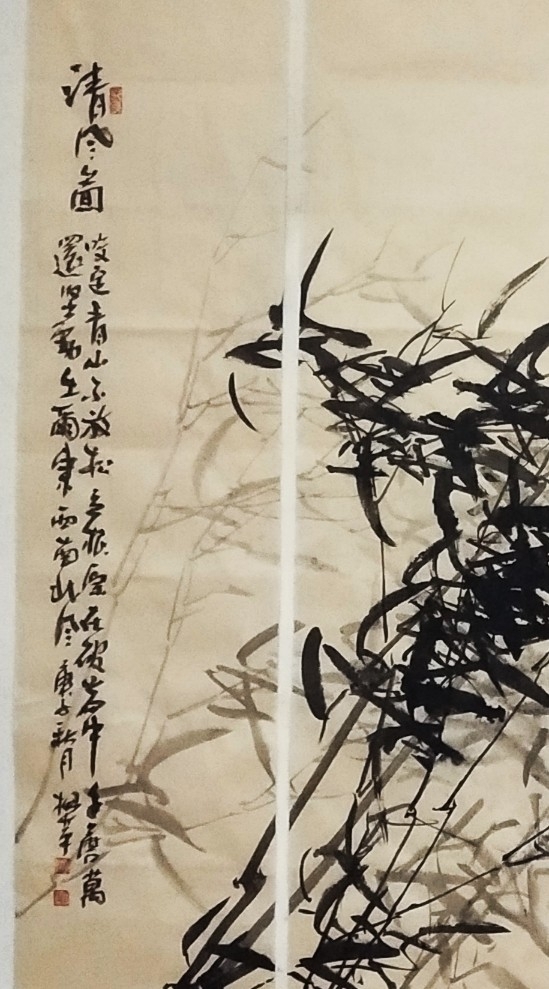 清风圖
咬定青山不放松立根原在破岩中千磨萬
還坚勁任爾東西南北风庚子秋月